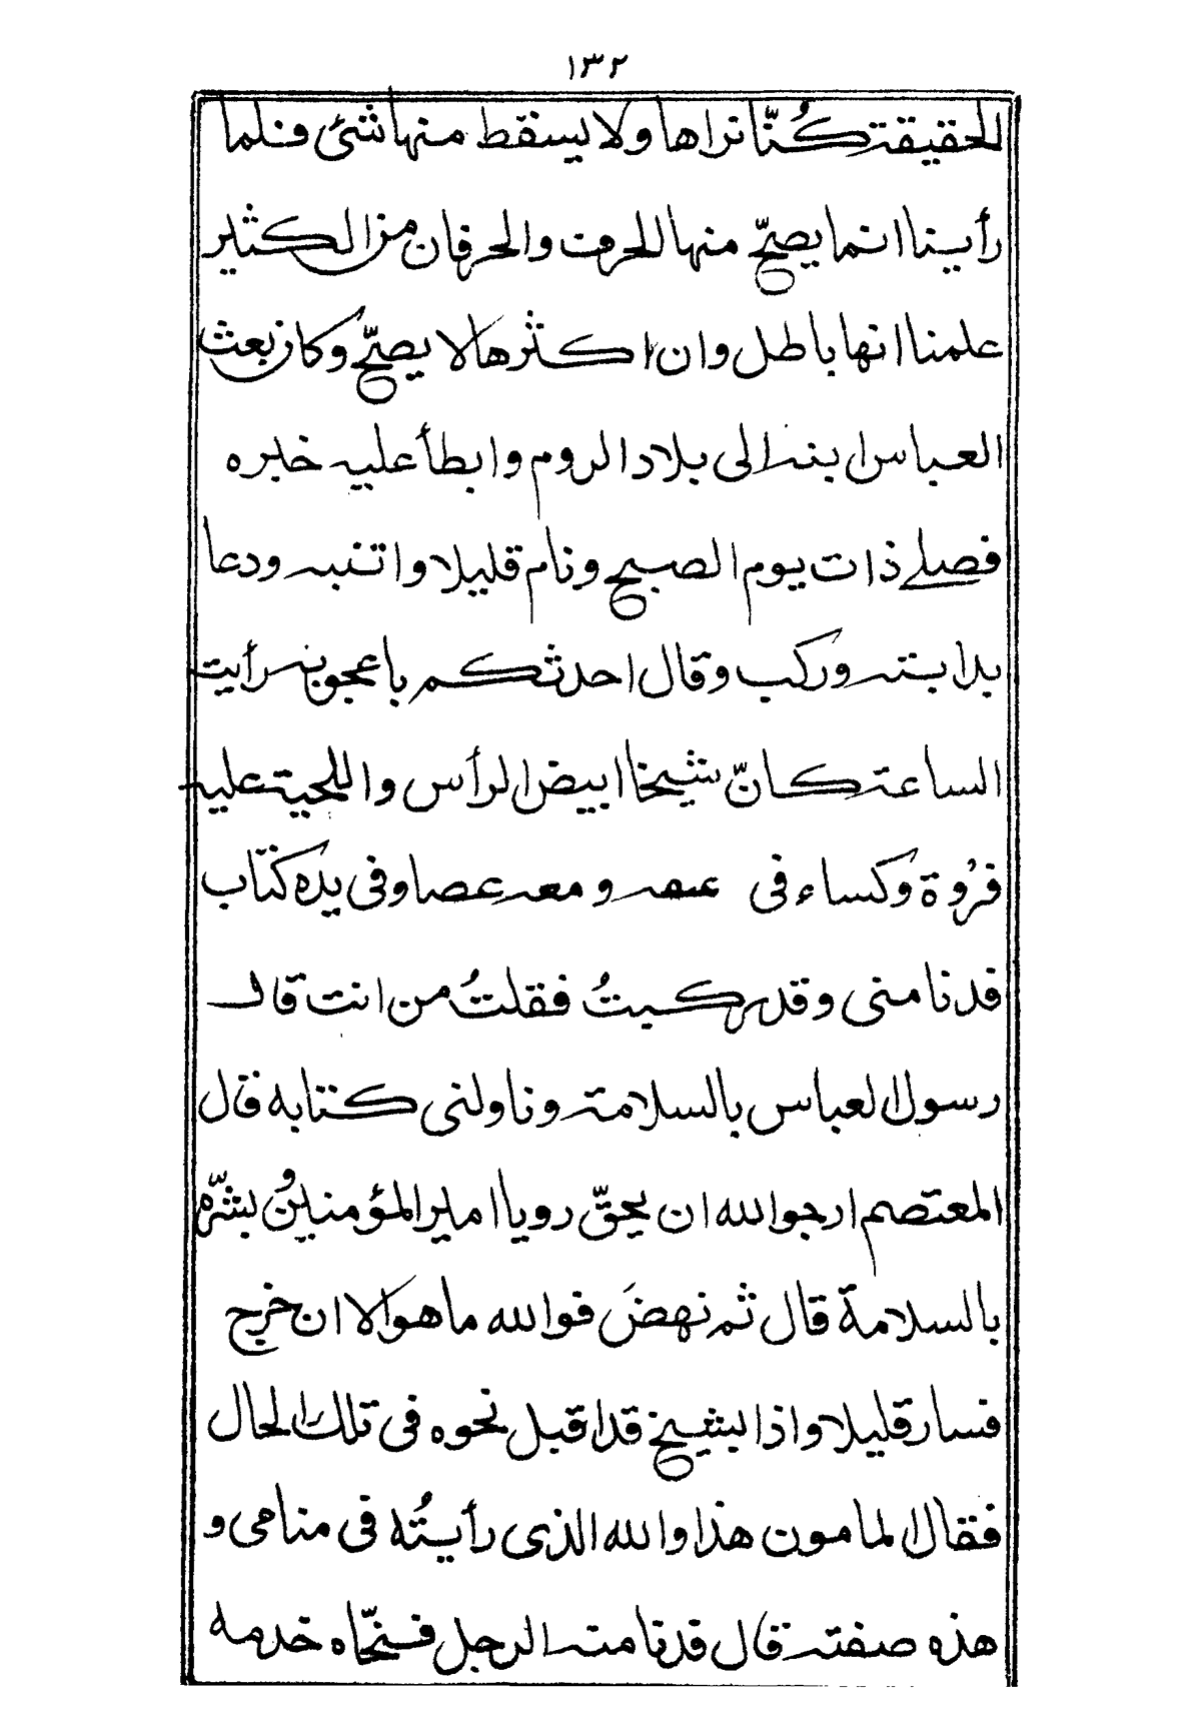 ١٣٢
للحقيقة كُنّا نراها ولا يسقط منها شئ فلما
رأينا انما يصحّ منها الحرف والحرفان من الكثير
علمنا انها باطل وان اكثرها لا يصحّ وكان بعث
العباس ابنه الى بلاد الروم وابطأ عليه خبره
فصلى ذات يوم الصبح ونام قليلا واتنبه ودعا
بدابته وركب وقال احدثكم باعجوبة رأيت
الساعة كانّ شيخا ابيض الرأس واللحية عليه
فرُوة وكساء فى ومعه عصا وفى يده كتاب
فدنا منى وقد ركبتُ فقلتُ من انت قال
رسول العباس بالسلامة وناولنى كتابه قال
المعتصم ارجو الله ان يحقّ رويا امير المؤمنين ويُسَرّه
بالسلامة قال ثم نهضَ فوالله ما هو الا ان خرج
فسار قليلا واذا بشيخ قد اقبل نحوه فى تلك الحال
فقال المامون هذا والله الذى رأيتُه فى منامى و
هذه صفته قال فدنا منه الرجل فنحّاه خدمه